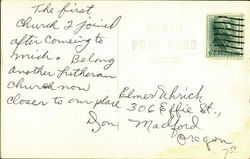 The first
Church I joined
after comeing to
Mich. Belong
another Lutheran
Church now
closer to our place
Son
PHOTO
POST CARD
Elmer Ehrich
306 Effie St.,
Medford
Oregon